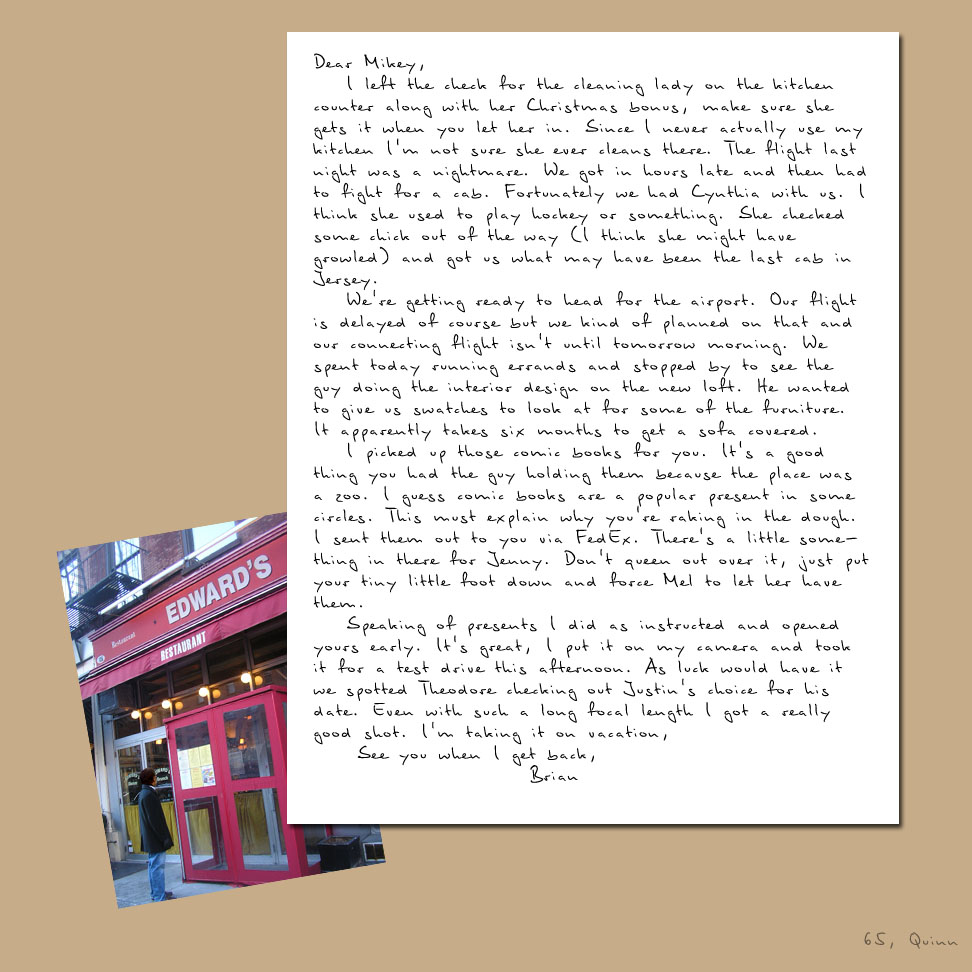 Dear Mikey,
I left the check for the cleaning lady on the kitchen
counter along with her Christmas bonus, make sure she
gets it when you let her in. Since I never actually use my
kitchen I'm not sure she ever cleans there. The flight last
night was a nightmare. We got in hours late and then had
to fight for a cab. Fortunately we had Cynthia with us. I
think she used to play hockey or something. She checked
some chick out of the way (I think she might have
growled) and got us what may have been the last cab in
Jersey.
We're getting ready to head for the airport. Our flight
is delayed of course but we kind of planned on that and
our connecting flight isn't until tomorrow morning. We
spent today running errands and stopped by to see the
guy doing the interior design on the new loft. He wanted
to give us swatches to look at for some of the furniture.
It apparently takes six months to get a sofa covered.
I picked up those comic books for you. It's a good
thing you had the guy holding them because the place was
a zoo. I guess comic books are a popular present in some
circles. This must explain why you're raking in the dough.
I sent them out to you via FedEx. There's a little some-
thing in there for Jenny. Don't queen out over it, just put
your tiny little foot down and force Mel to let her have
them.
Speaking of presents I did as instructed and opened
yours early. It's great, I put it on my camera and took
it for a test drive this afternoon. As luck would have it
we spotted Theodore checking out Justin's choice for his
date. Even with such a long focal length I got a really
good shot. I'm taking it on vacation,
See you when I get back,
Brian
Restaurant EDWARD'S
RESTAURANT
65, Quinn